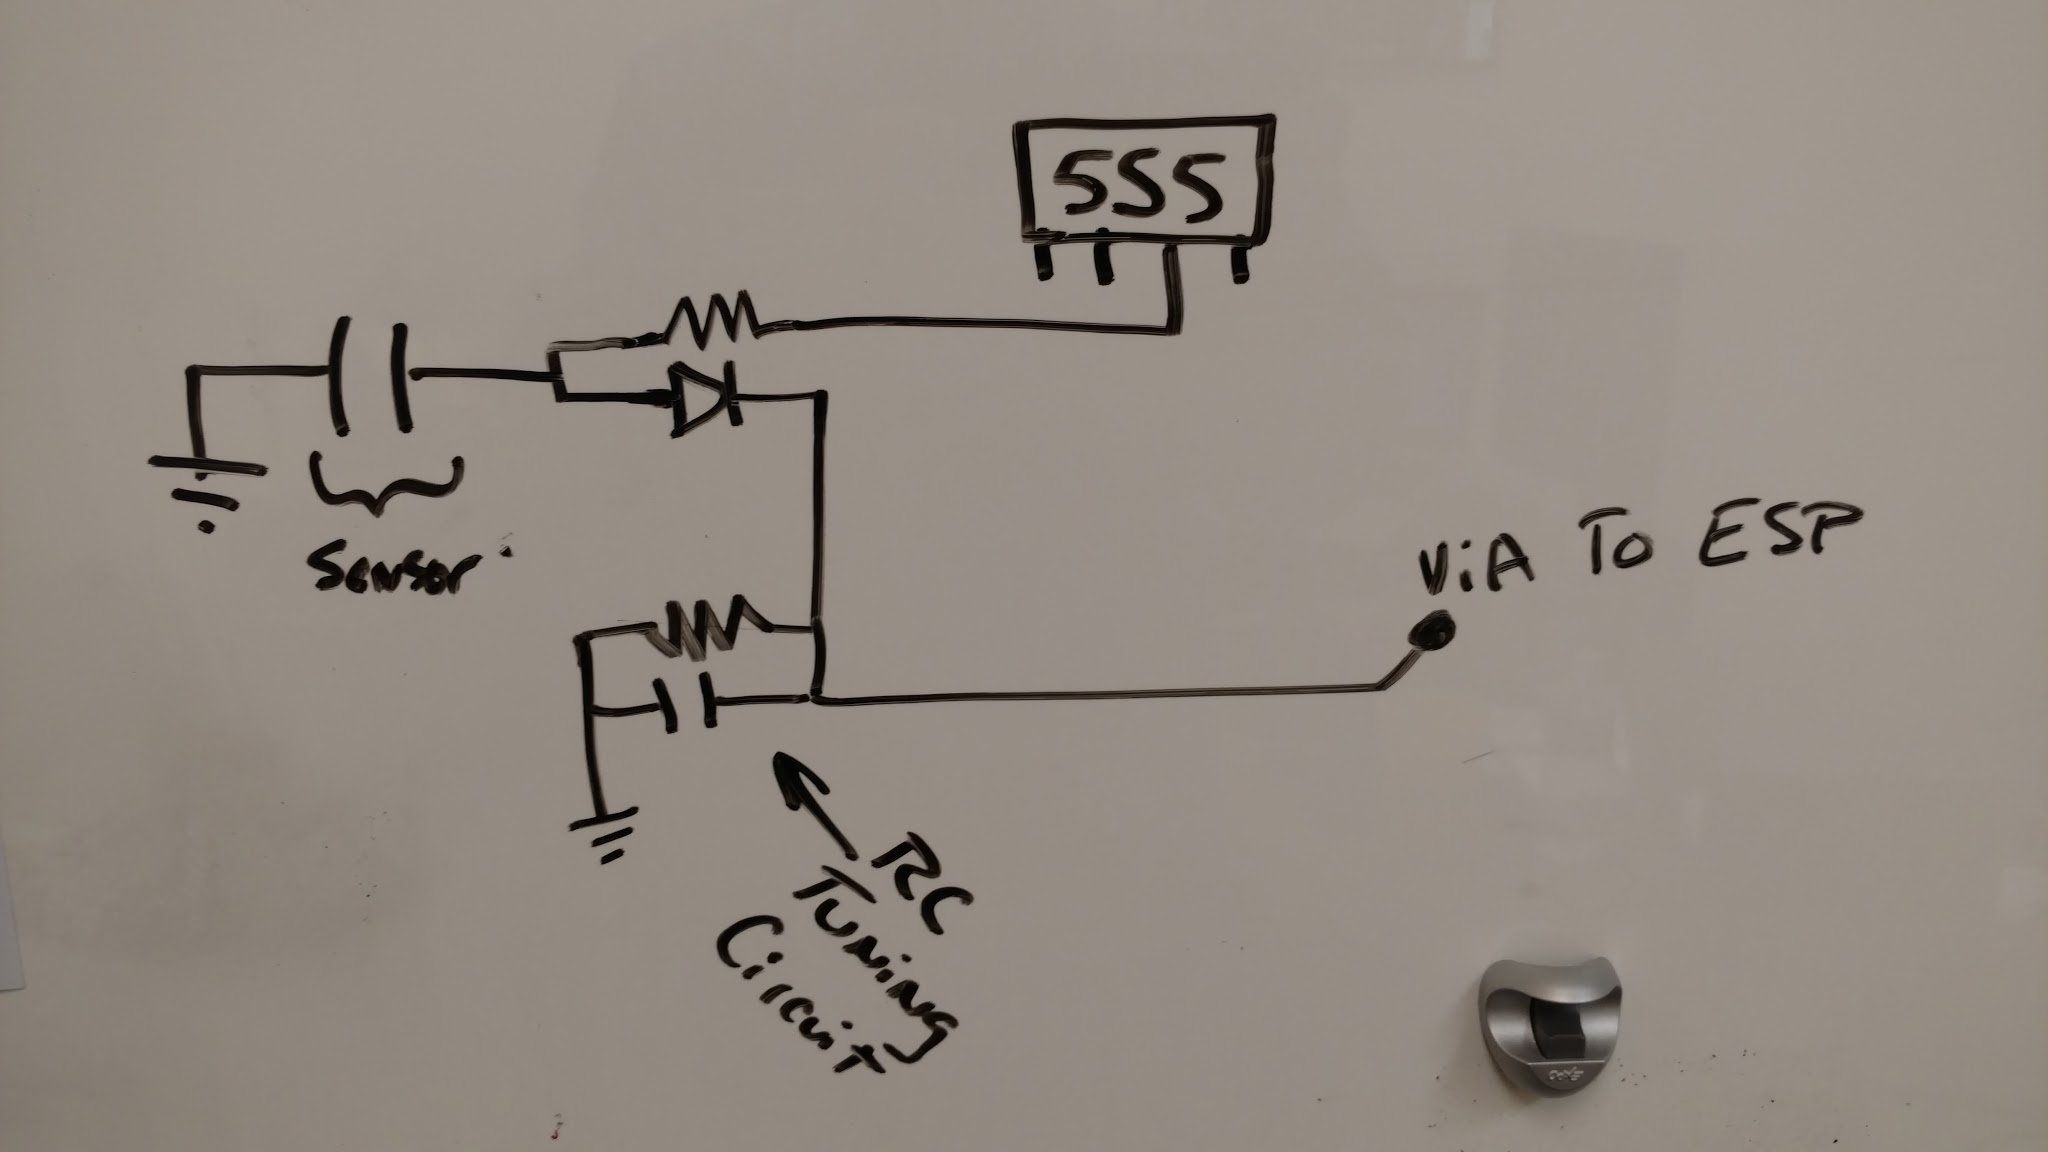 555
Sensor
ViA To ESP
RC
Tuning
Circuit